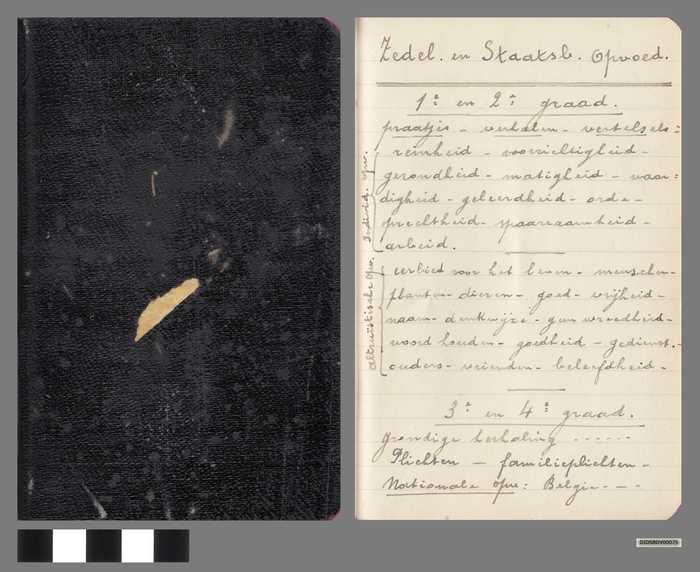 Zedel. en Staatsb. opvoed.
1e en 2e graad.
praatjes - verhalen - vertelsels:
reinheid - voorzichtigheid -
gezondheid - matigheid - waar:
digheid - geleerdheid - orde -
prechtheid - spaarzaamheid -
arbeid.
Individ. opv.
eerbied voor het leven - menschen -
planten - dieren - goed - vrijheid -
naam - denkwijze - geen wreedheid -
woord houden - goedheid - gedienst. -
ouders - vrienden - beleefdheid -
altruïstische opv.
3e en 4e graad.
grondige herhaling ......
Plichten - familieplichten -
Nationale opv: België - - -
DIDSBDV00075